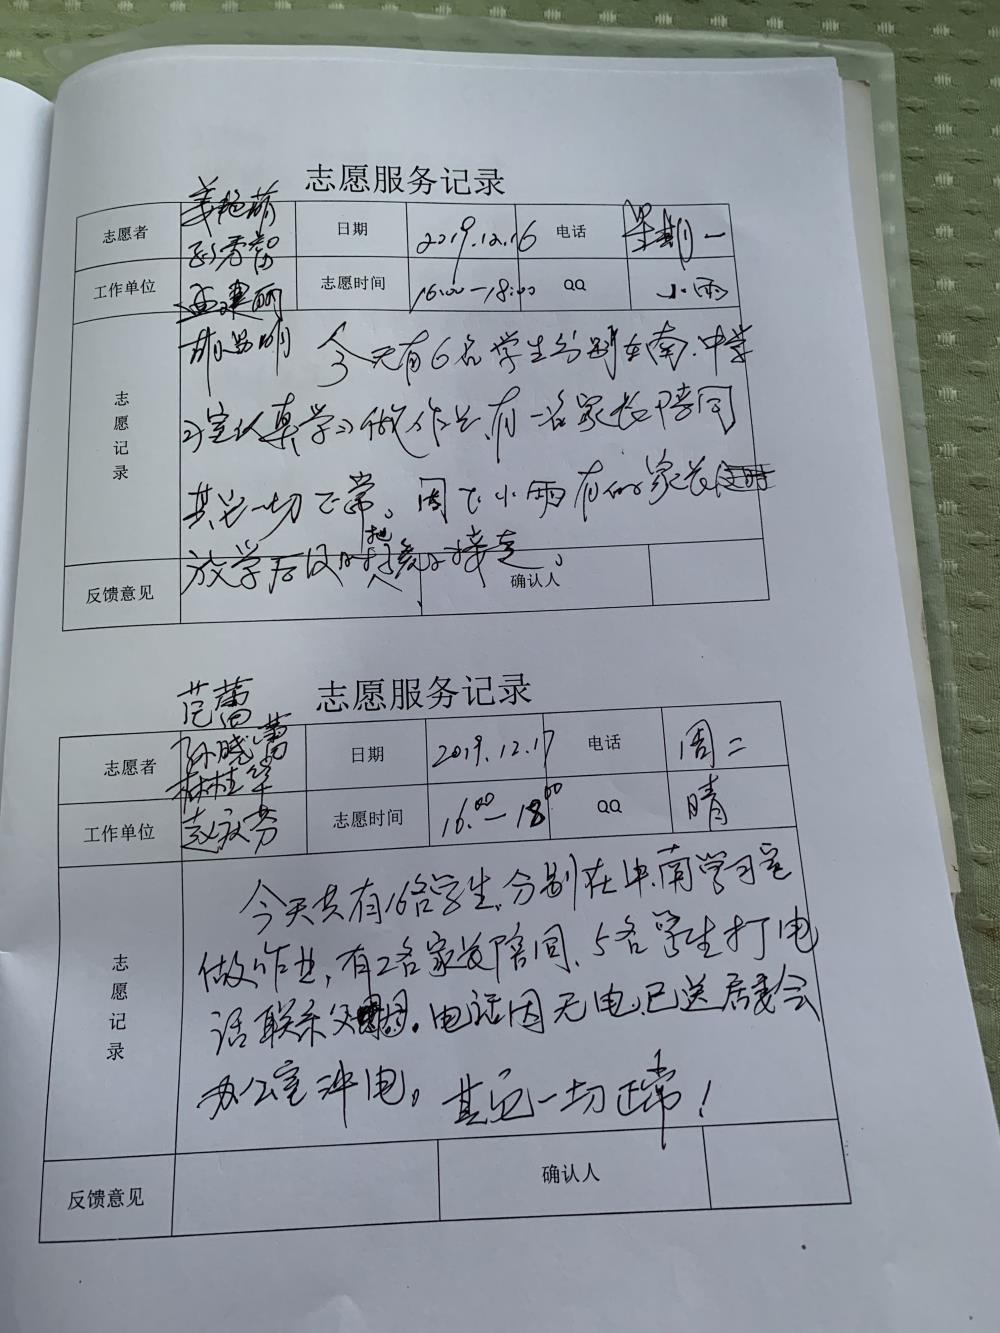 志愿服务记录
志愿者 姜艳萌 日期 2019.12.16 电话 星期一
孙秀智
工作单位 孟建丽 志愿时间 16:00—18:00 QQ 小雨
胡岩明 今天有6名学生分别在南.中学
志愿记录
习室认真学习做作业,有一名家长陪同
其它一切正常。因下小雨有的家长
放学后及时把孩子接走。
反馈意见 确认人
志愿服务记录
范蕾
志愿者 孙晓蕾 日期 2019.12.17 电话 周二
林桂华
工作单位 赵文芬 志愿时间 16:00—18:00 QQ 晴
志愿记录
今天共有16名学生,分别在中.南学习室
做作业,有2名家长陪同、5名学生打电
话联系父母。电话因无电,已送居委会
办公室冲电。其它一切正常!
反馈意见 确认人